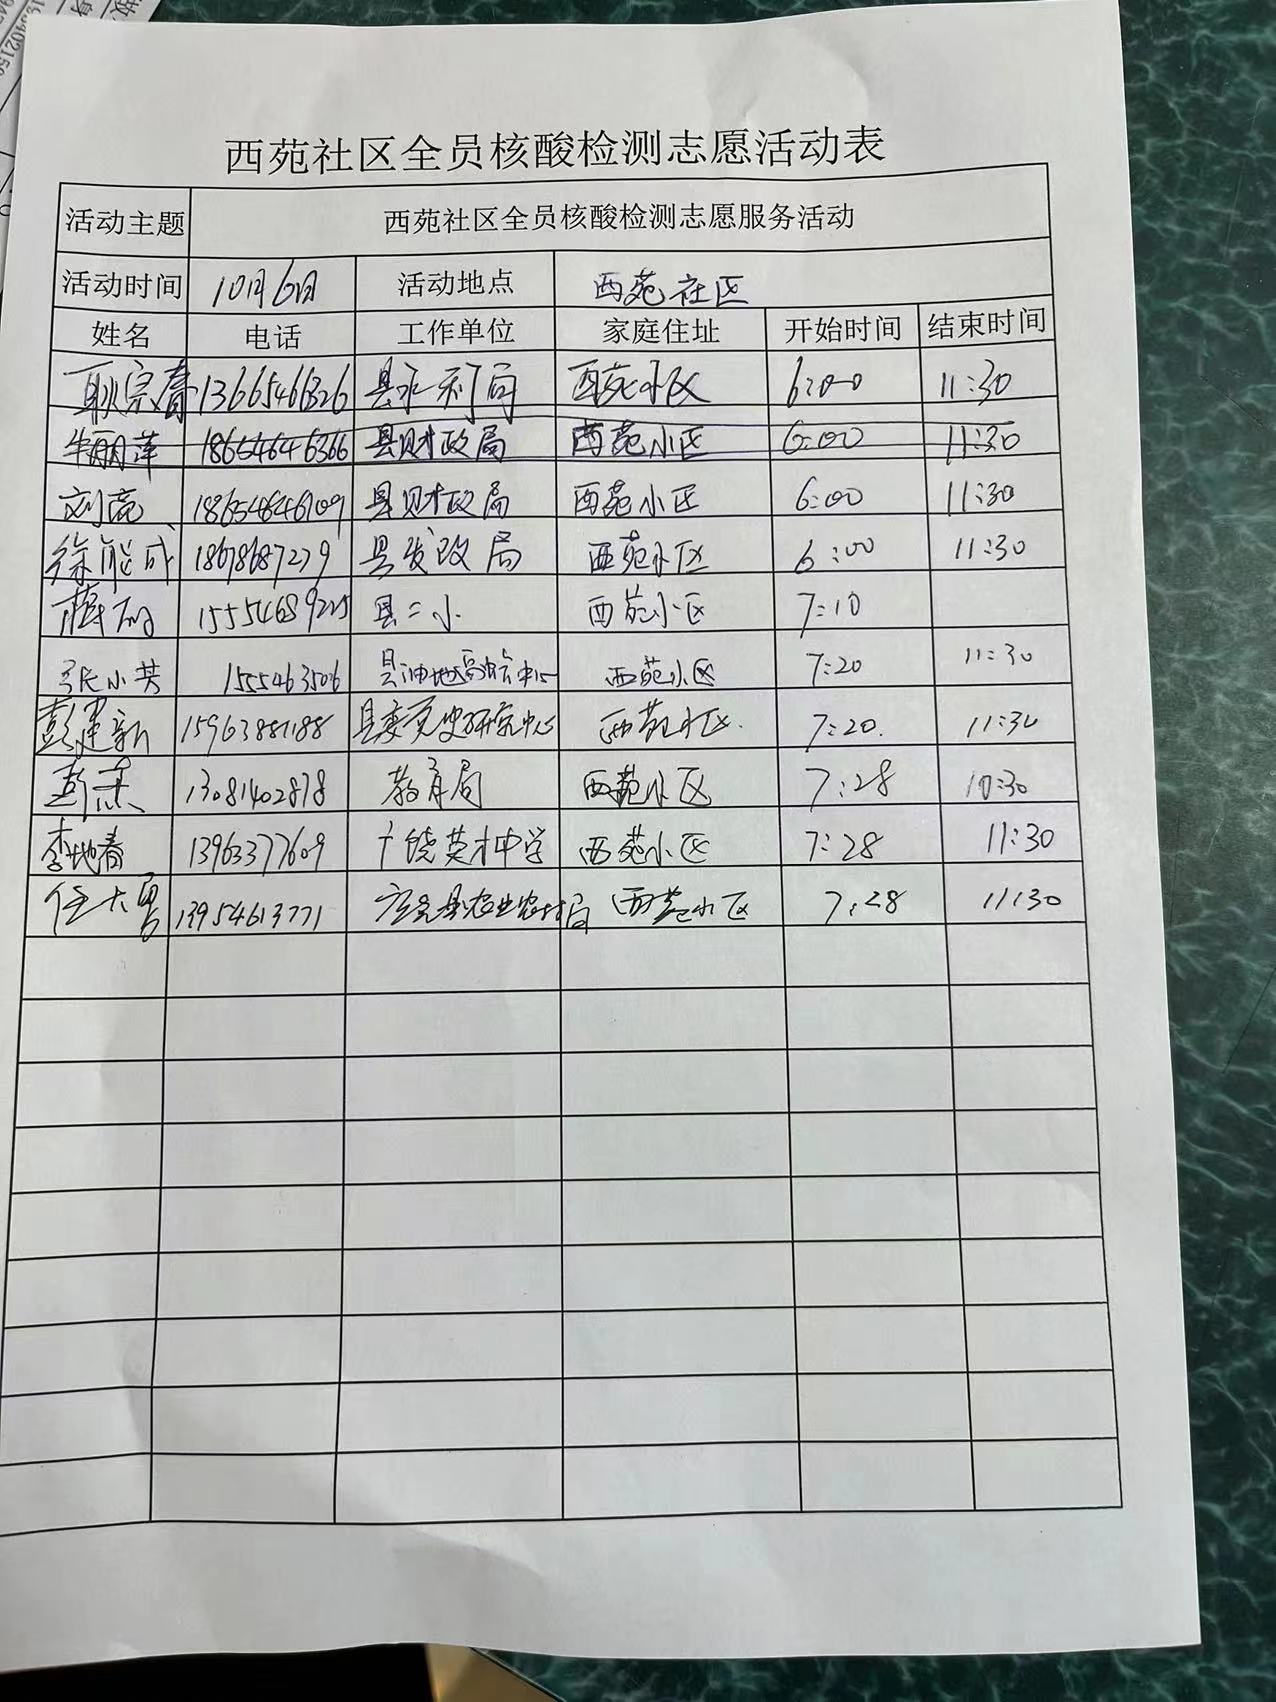 西苑社区全员核酸检测志愿活动表
活动主题 西苑社区全员核酸检测志愿服务活动
活动时间 10月6日 活动地点 西苑社区
姓名 电话 工作单位 家庭住址 开始时间 结束时间
耿宗春 13665466326 县水利局 西苑小区 6:00 11:30
牛丽萍 18654646366 县财政局 西苑小区 6:00 11:30
刘亮 县财政局 西苑小区 6:00 11:30
徐能成 18678687279 县发改局 西苑小区 6:00 11:30
蒋丽 15554689225 县二小 西苑小区 7:10
张小芳 1555463506 西苑小区 7:20 11:30
彭建新 15963881188 县委党史研究中心 西苑小区. 7:20. 11:30
彭杰 13081402878 教育局 西苑小区 7:28 10:30
李地春 13963377609 广饶英才中学 西苑小区 7:28 11:30
任大勇 13954613771 广饶县农业农村局 西苑小区 7:28 11:30